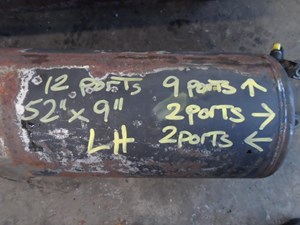 12 PORTS 9 PORTS ↑
52" x 9" 2 PORTS →
LH 2 PORTS ←